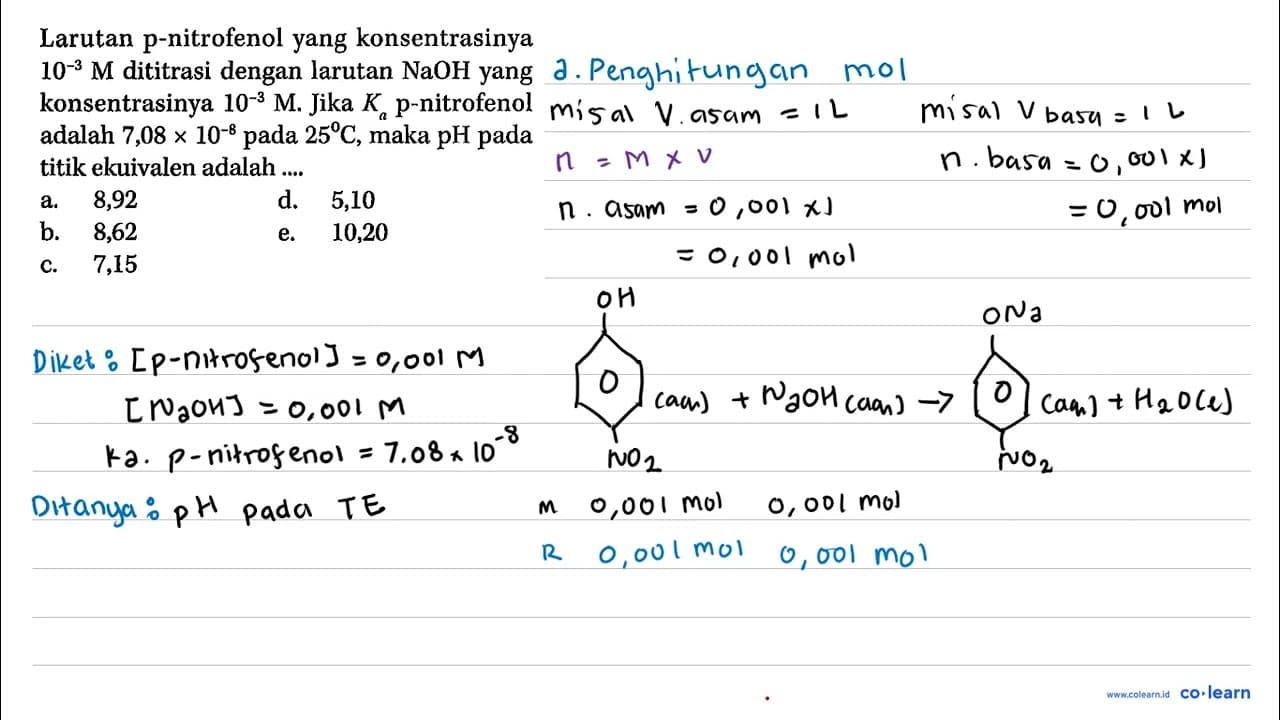 Larutan p-nitrofenol yang konsentrasinya
10⁻³ M dititrasi dengan larutan NaOH yang
konsentrasinya 10⁻³ M. Jika Kₐ p-nitrofenol
adalah 7,08 × 10⁻⁸ pada 25⁰C, maka pH pada
titik ekuivalen adalah ....
a. 8,92 d. 5,10
b. 8,62 e. 10,20
c. 7,15
Diket : [p-nitrofenol] = 0,001 M
[NaOH] = 0,001 M
ka. p-nitrofenol = 7.08 x 10⁻⁸
Ditanya : pH pada TE
a. Penghitungan mol
misal V. asam = 1 L misal V basa = 1 L
n = M x V n. basa = 0,001 x 1
n. asam = 0,001 x 1 = 0,001 mol
= 0,001 mol
OH ONa
(aq) + NaOH (aq) → (aq) + H₂O(l)
NO₂ NO₂
M 0,001 mol 0,001 mol
R 0,001 mol 0,001 mol
www.colearn.id co·learn